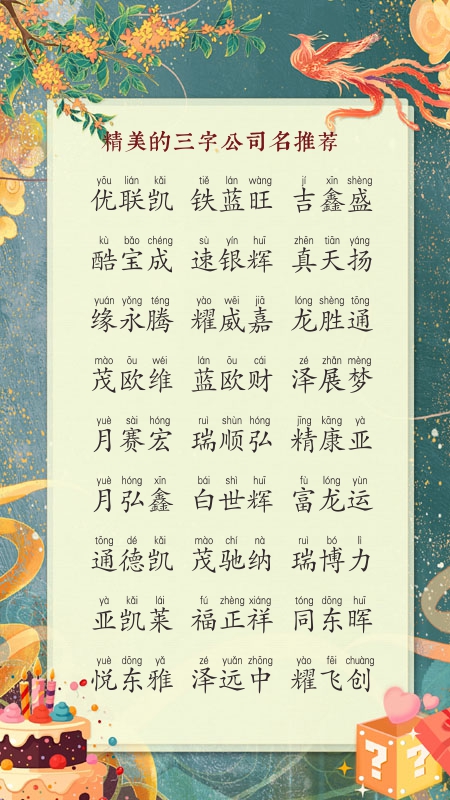 精美的三字公司名推荐
yōu lián kǎi tiě lán wàng jí xīn shèng
优联凯 铁蓝旺 吉鑫盛
kù bǎo chéng sù yín huī zhēn tiān yáng
酷宝成 速银辉 真天扬
yuán yǒng téng yào wēi jiā lóng shèng tōng
缘永腾 耀威嘉 龙胜通
mào ōu wéi lán ōu cái zé zhǎn mèng
茂欧维 蓝欧财 泽展梦
yuè sài hóng ruì shùn hóng jīng kāng yà
月赛宏 瑞顺弘 精康亚
yuè hóng xīn bái shì huī fù lóng yùn
月弘鑫 白世辉 富龙运
tōng dé kǎi mào chí nà ruì bó lì
通德凯 茂驰纳 瑞博力
yà kǎi lái fú zhèng xiáng tóng dōng huī
亚凯莱 福正祥 同东晖
yuè dōng yǎ zé yuǎn zhōng yào fēi chuàng
悦东雅 泽远中 耀飞创